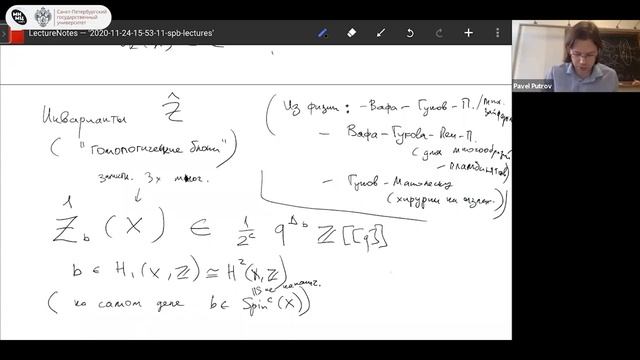 Санкт-Петербургский
государственный
университет
LectureNotes — '2020-11-24-15-53-11-spb-lectures'
Pavel Putrov
Инварианты Ẑ
("гомологические блоки")
замкн. 3х мног.
Ẑ_b (X) ∈ 1/2^c q^{Δ_b} ℤ[[q]]
b ∈ H₁(X, ℤ) ≅ H²(X, ℤ)
(на самом деле b ∈ Spin^c (X))
Из физики: - Вафа - Гуков - П. /
- Вафа - Гуков - Пей - П.
(для многообразий
- Гуков - Манолеску
(хирургии на узлах)